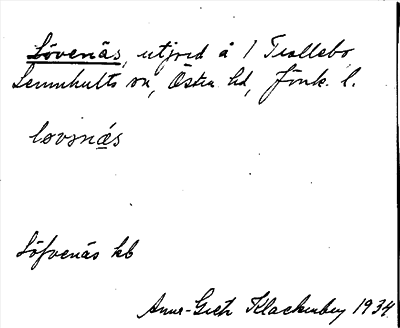 Lövenäs, utjord å 1 Trollebo
Lemnhults sn, Östra hd, Jönk. l.
lovsnæs
Löfvenäs kb
Anna-Greta Klackenberg 1934